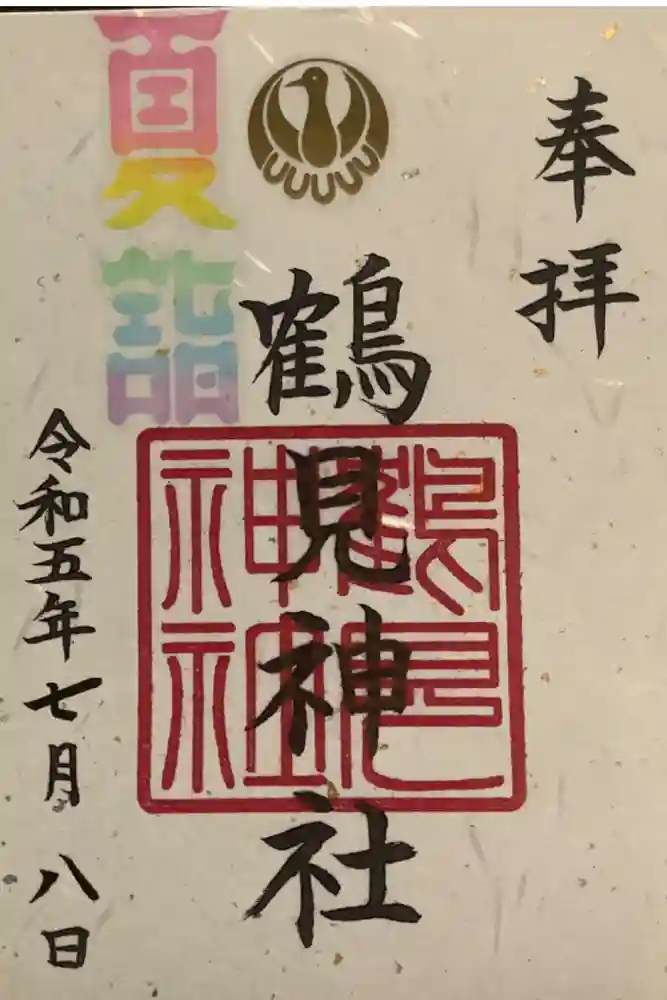 奉拝
鶴見神社
鶴見
神社
夏詣
令和五年七月八日